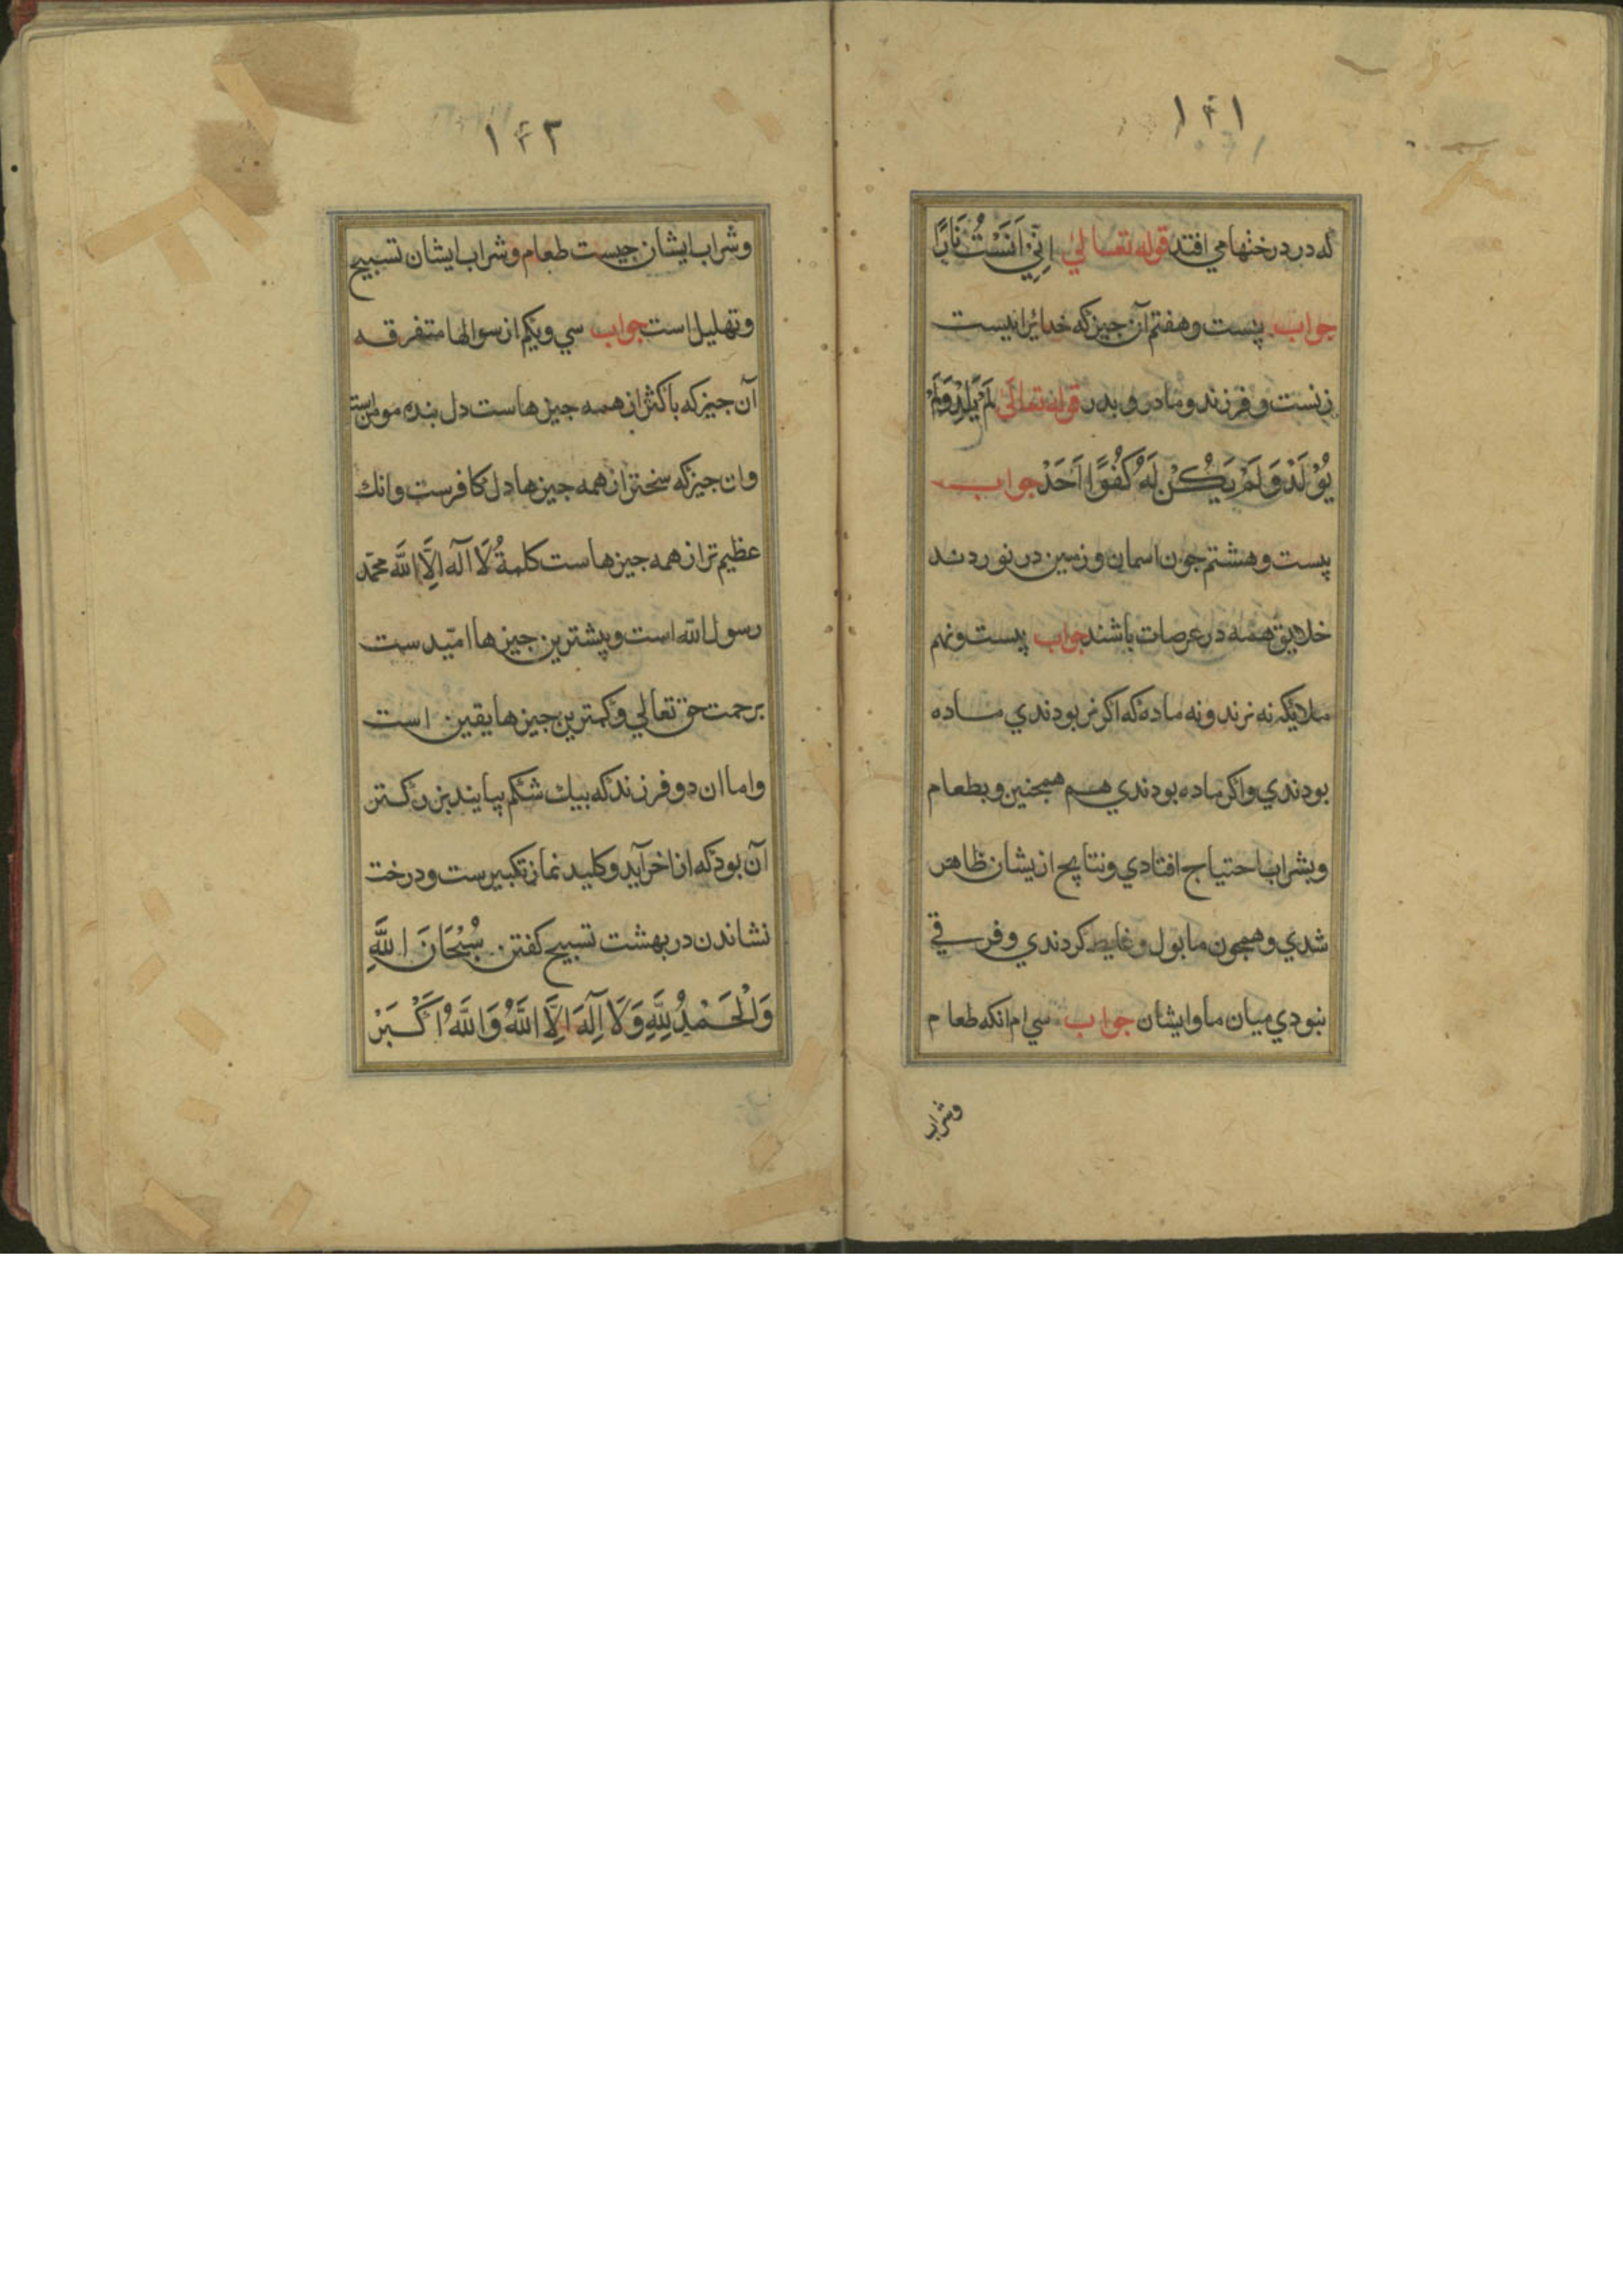 ۱۴۱
که در درختها می افتد قوله تعالی اِنّي اٰنَسْتُ نَارًا
جواب بیست و هفتم آن جیز که خدایرا نیست
زنست و فرزند و مادر و بدر قوله تعالی لَمْ یَلِدْ وَلَمْ
یُوْلَدْ وَلَمْ یَکُنْ لَهُ کُفُوًا اَحَدْ جواب
بیست و هشتم جون اسمان و زمین در نوردند
خلایق همه در عرصات باشند جواب بیست و نهم
ملایکه نه نرند و نه ماده که اکر نر بودندي ماده
بودندي و اکر ماده بودندي هم همجنین و بطعام
و بشراب احتیاج افتادي و نتایج ازیشان ظاهر
شدي و همجون ما بول و غایط کردندي و فرقي
نبودي میان ما و ایشان جواب سي ام انکه طعام
وشراب
۱۴۲
وشراب ایشان جیست طعام و شراب ایشان تسبیح
و تهلیل است جواب سي و یکم از سوالها متفرقه
آن جیز که باکتر از همه جیزهاست دل بنده مومن است
وان جیز که سختر از همه جیزها دل کافرست وانك
عظیم تر از همه جیزهاست کلمةُ لَا اِلٰه اِلَّا اللّه محمّد
رسول اللّه است و بیشترین جیزها امیّدست
برحمت حق تعالي و کمترین جیزها یقین است
و اما ان دو فرزند که بیك شکم بیایند بزرکتر
آن بود که از اخر آید و کلید نماز تکبیرست و درخت
نشاندن در بهشت تسبیح کفتن سُبْحَانَ اللّٰهِ
وَالْحَمْدُ لِلّٰهِ وَلَا اِلٰهَ اِلَّا اللّٰهُ وَاللّٰهُ اَکْبَرْ